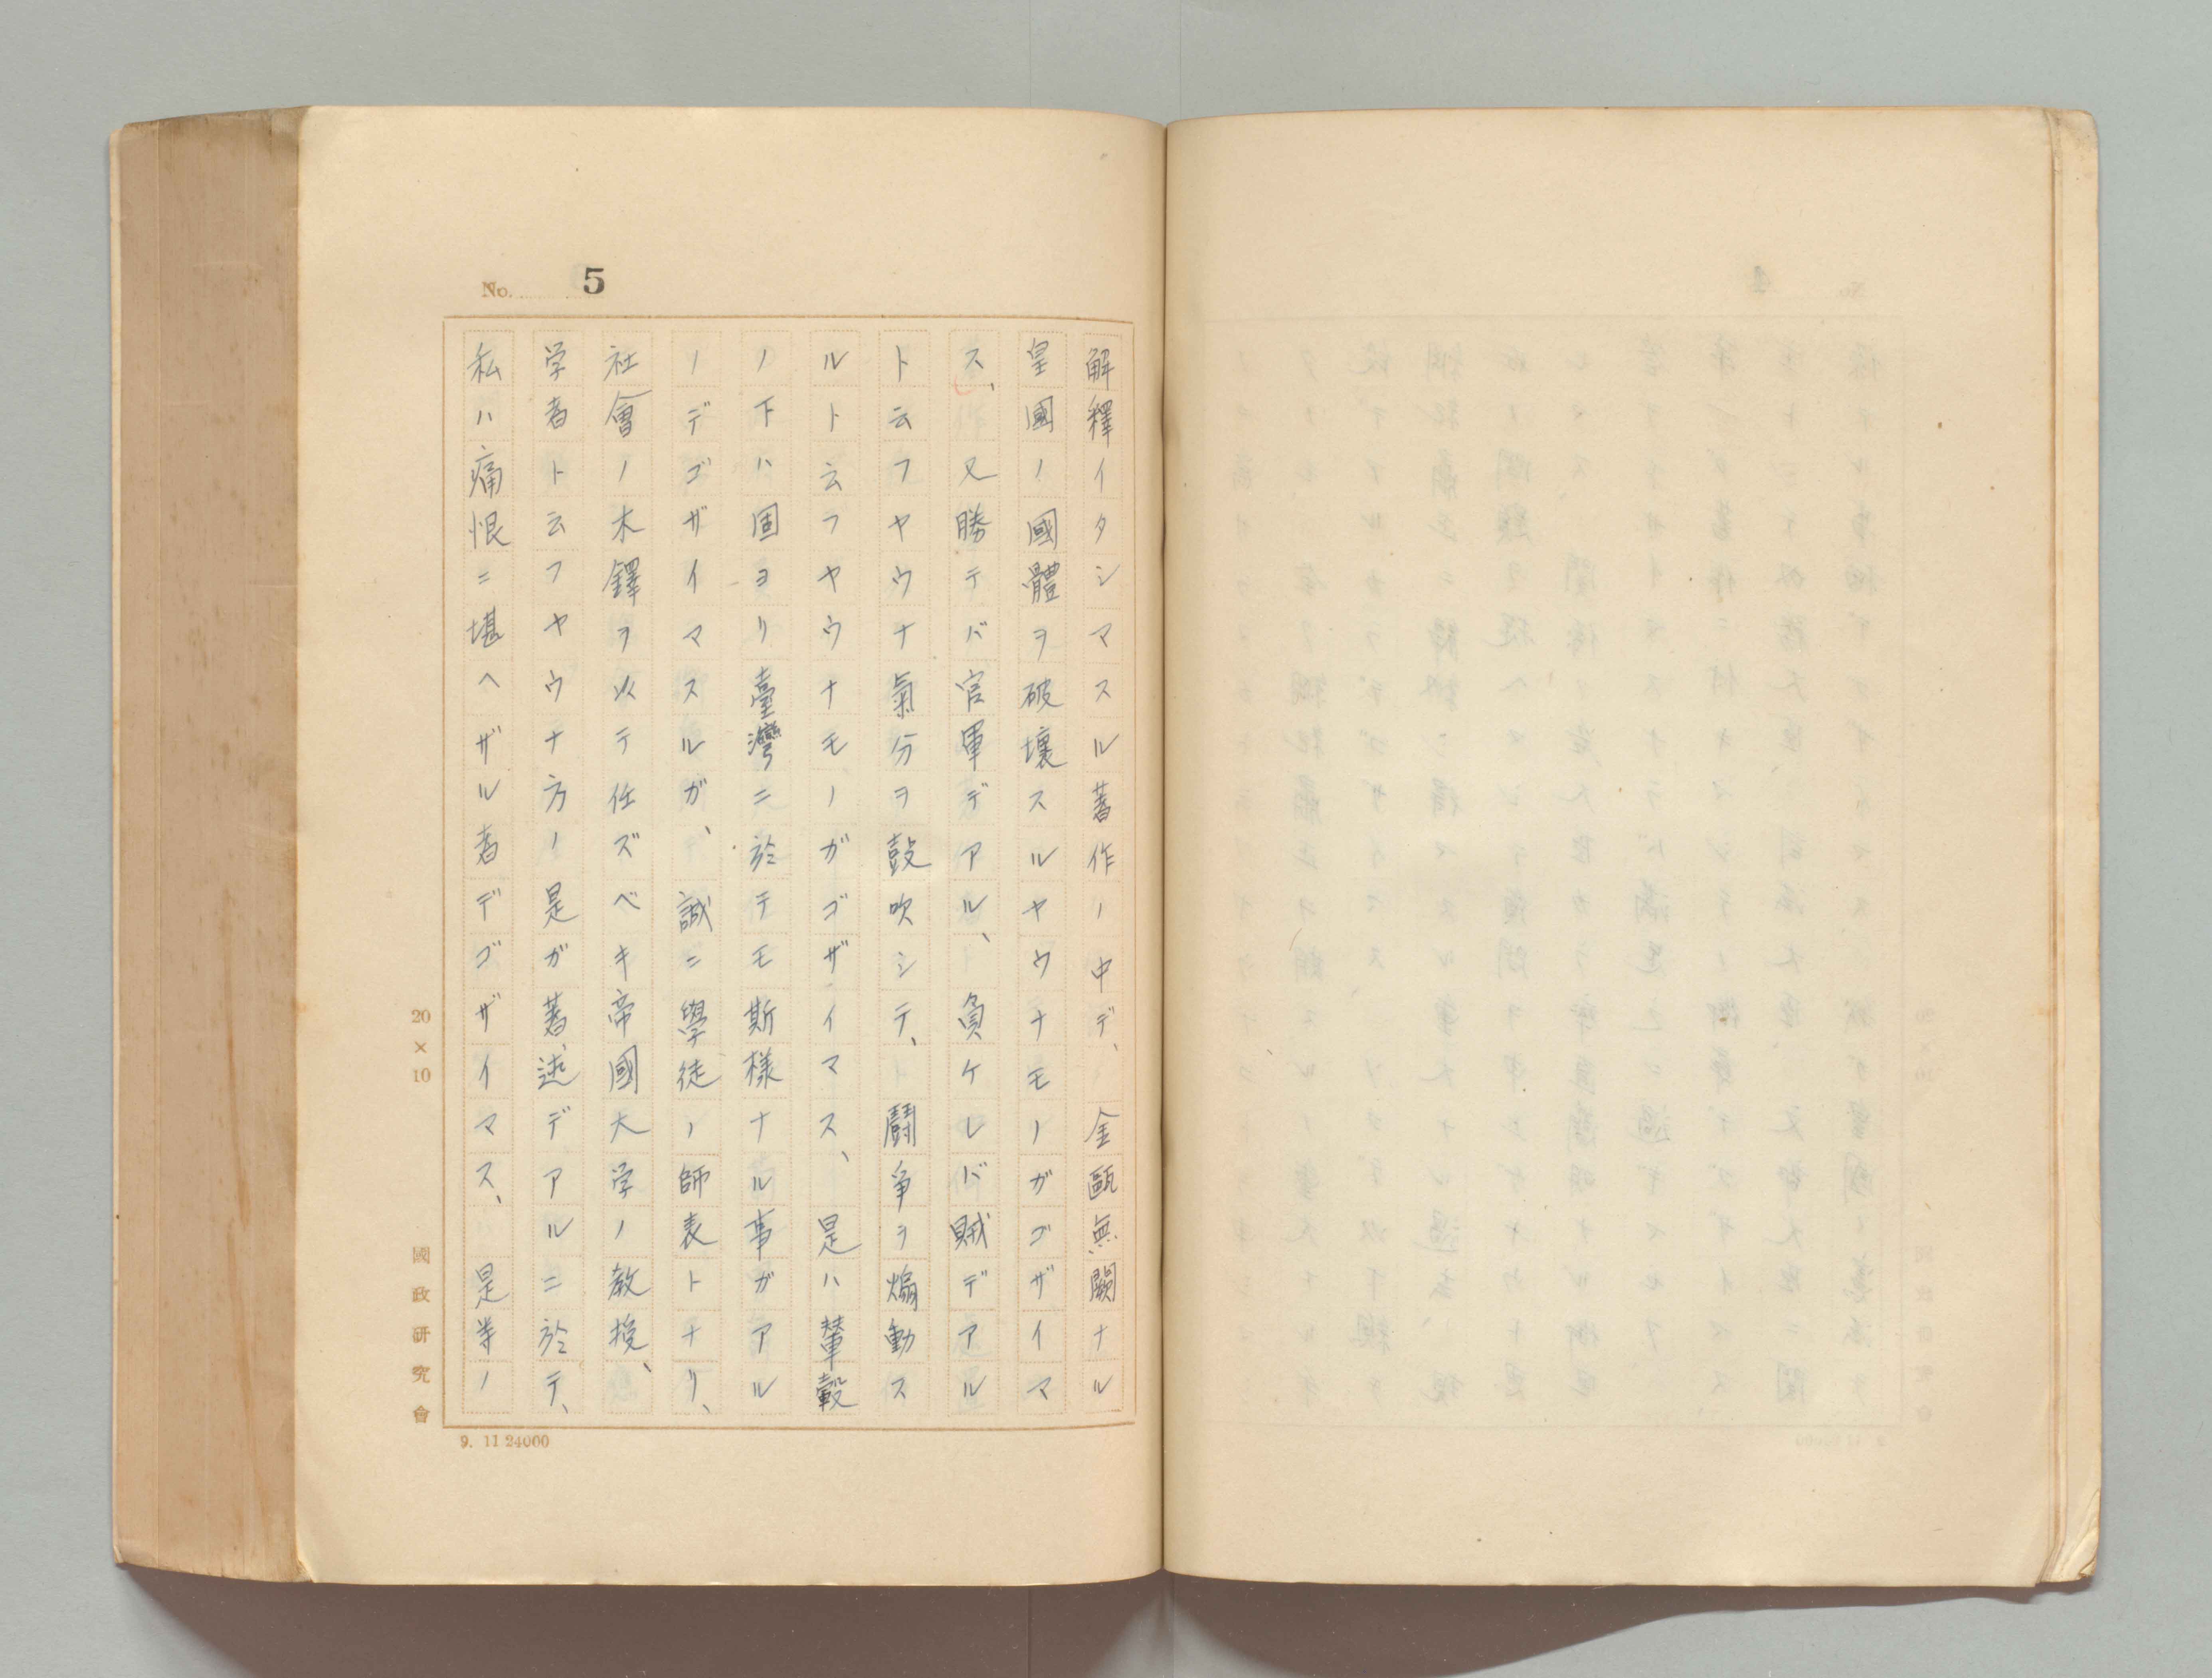 No. 5
解釋イタシマスル著作ノ中デ、金甌無闕ナル
皇國ノ國體ヲ破壞スルヤウナモノガゴザイマ
ス、又勝テバ官軍デアル、負ケレバ賊デアル
ト云フヤウナ氣分ヲ鼓吹シテ、鬪爭ヲ煽動ス
ルト云フヤウナモノガゴザイマス、是ハ輦轂
ノ下ハ固ヨリ臺灣ニ於テモ斯樣ナル事ガアル
ノデゴザイマスルガ、誠ニ學徒ノ師表トナリ、
社會ノ木鐸ヲ以テ任ズベキ帝國大学ノ教授、
学者ト云フヤウナ方ノ是ガ著述デアルニ於テ、
私ハ痛恨ニ堪ヘザル者デゴザイマス、是等ノ
20×10
國政研究會
9. 11 24000